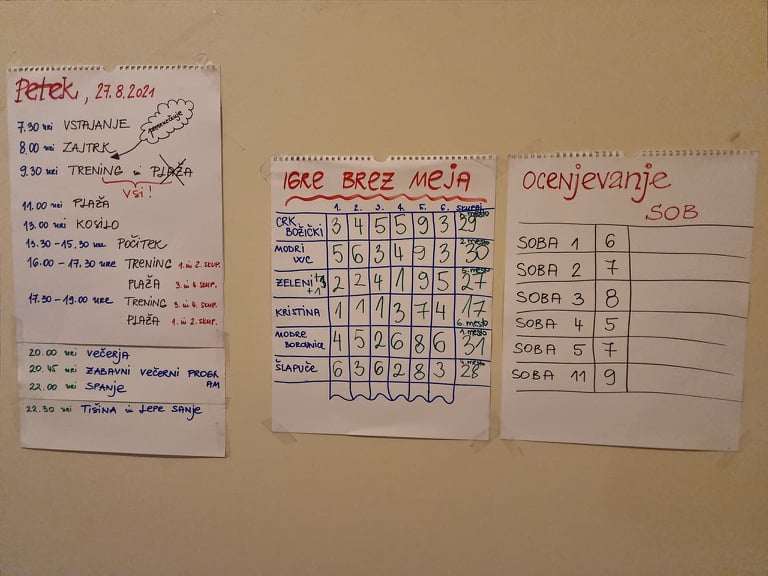 Petek, 27.8.2021
7.30 uri VSTAJANJE
8.00 uri ZAJTRK
9.30 uri TRENING in PLAŽA
VSI!
11.00 uri PLAŽA
13.00 uri KOSILO
13.30 - 15.30 ure POČITEK
16.00 - 17.30 ure TRENING 1. in 2. skup.
PLAŽA 3. in 4. skup.
17.30 - 19.00 ure TRENING 3. in 4. skup.
PLAŽA 1. in 2. skup.
20.00 uri VEČERJA
20.45 uri ZABAVNI VEČERNI PROGR
AM
22.00 uri SPANJE
22.30 uri TIŠINA in LEPE SANJE
IGRE BREZ MEJA
1. 2. 3. 4. 5. 6. SKUPAJ
CRK BOŽIČKI 3 4 5 5 9 3 29 mesto
MODRI WC 5 6 3 4 9 3 30 2. mesto
ZELENI +1 +1 2 2 4 1 9 5 27 5. mesto
KRISTINA 1 1 1 3 7 4 17 6. mesto
MODRE BOROVNICE 4 5 2 6 8 6 31 1. mesto
ŠLAPUČE 6 3 6 2 8 3 28 mesto
OCENJEVANJE
SOB
SOBA 1 6
SOBA 2 7
SOBA 3 8
SOBA 4 5
SOBA 5 7
SOBA 11 9